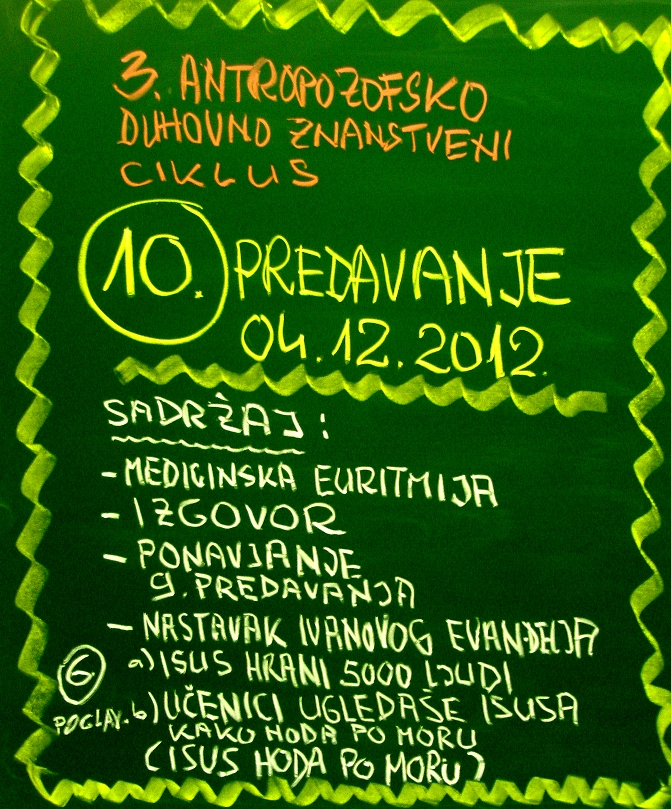 3. ANTROPOZOFSKO
DUHOVNO ZNANSTVENI
CIKLUS
10. PREDAVANJE
04.12.2012.
SADRŽAJ:
- MEDICINSKA EURITMIJA
- IZGOVOR
- PONAVJANJE
9. PREDAVANJA
- NASTAVAK IVANOVOG EVANĐELJA
a) ISUS HRANI 5000 LJUDI
6. POGLAV. b) UČENICI UGLEDAŠE ISUSA
KAKO HODA PO MORU
(ISUS HODA PO MORU)